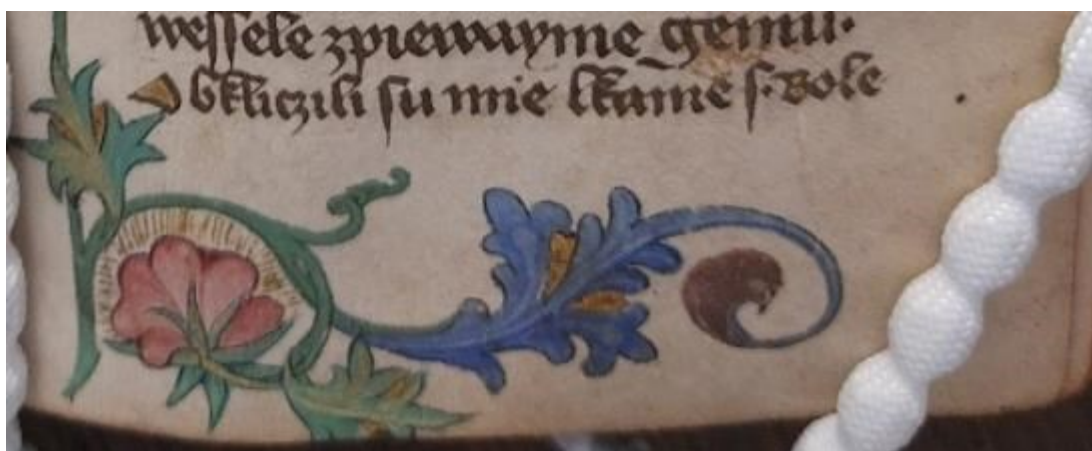 weſſele zpiewayme gemu·
Obkliczili ſu mie lkanie ſ·bole